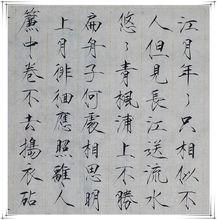 江月年〻只相似不
人但見長江送流水
悠〻青楓浦上不勝
扁舟子何處相思明
上月徘徊應照離人
簾中卷不去搗衣砧